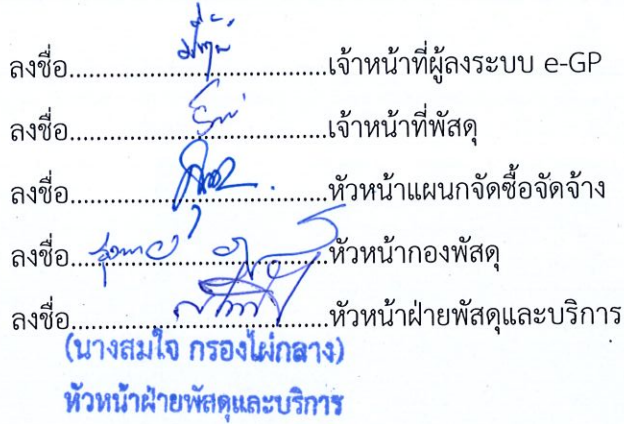 ลงชื่อ................................เจ้าหน้าที่ผู้ลงระบบ e-GP
ลงชื่อ................................เจ้าหน้าที่พัสดุ
ลงชื่อ................................หัวหน้าแผนกจัดซื้อจัดจ้าง
ลงชื่อ................................หัวหน้ากองพัสดุ
ลงชื่อ................................หัวหน้าฝ่ายพัสดุและบริการ
(นางสมใจ กรองไผ่กลาง)
หัวหน้าฝ่ายพัสดุและบริการ